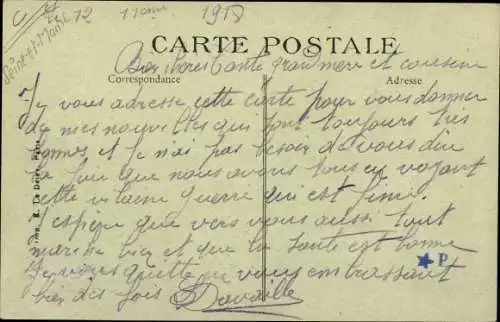 12 11ème 1918
Seine-et-Marne
CARTE POSTALE
Correspondance
Adresse
Bon chores tante grand mere et cousine
Je vous adresse cette carte pour vous donner
de mes nouvelles qui sont toujours très
bonnes et je n'ai pas besoin de vous dire
la joie que nous avons tous en voyant
cette vilaine guerre qui est finie
J'espère que vers vous aussi tout
marche bien et que la santé est bonne
Je vous quitte en vous embrassant
bien des fois Davaille
P